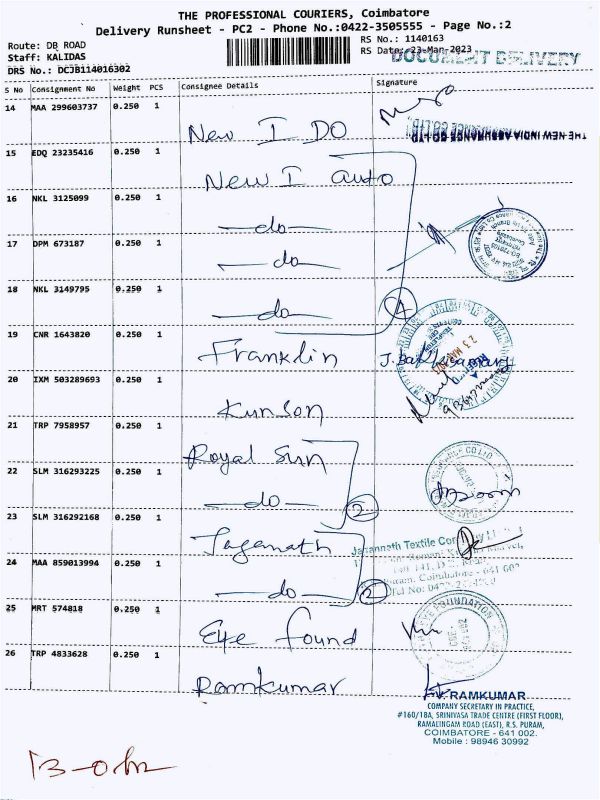 THE PROFESSIONAL COURIERS, Coimbatore
Delivery Runsheet - PC2 - Phone No.:0422-3505555 - Page No.:2
Route: DB ROAD
RS No.: 1140163
Staff: KALIDAS
RS Date: 23-Mar-2023
DOCUMENT DELIVERY
DRS No.: DCJB114016302
S No Consignment No Weight PCS Consignee Details Signature
14 MAA 299603737 0.250 1
New I DO
THE NEW INDIA ASSURANCE CO.LTD.
15 EDQ 23235416 0.250 1
New I auto
16 NKL 3125099 0.250 1
do
17 DPM 673187 0.250 1
do
18 NKL 3149795 0.250 1
do
4
19 CNR 1643820 0.250 1
Franklin
20 IXM 503289693 0.250 1
Kunson
21 TRP 7958957 0.250 1
Royal Sun
22 SLM 316293225 0.250 1
do
2
23 SLM 316292168 0.250 1
Jaganath
Jagannath Textile Company Limited
Coimbatore - 641 002
24 MAA 859013994 0.250 1
do
2
25 MRT 574818 0.250 1
Eye found
26 TRP 4833628 0.250 1
Ramkumar
RAMKUMAR
COMPANY SECRETARY IN PRACTICE,
#160/18A, SRINIVASA TRADE CENTRE (FIRST FLOOR),
RAMALINGAM ROAD (EAST), R.S. PURAM,
COIMBATORE - 641 002.
Mobile : 98946 30992